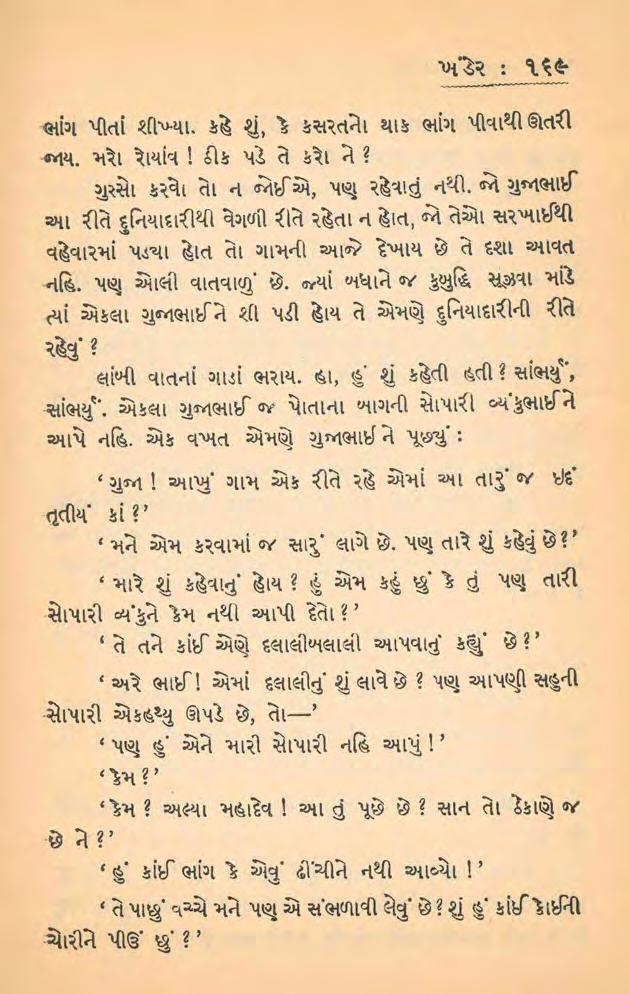 ખંડેર : ૧૬૯
ભાંગ પીતાં શીખ્યા. કહે શું, કે કસરતનો થાક ભાંગ પીવાથી ઊતરી
જાય. મરો રોયાંવ ! ઠીક પડે તે કરો ને ?
ગુસ્સો કરવો તો ન જોઈએ, પણ રહેવાતું નથી. જો ગુજાભાઈ
આ રીતે દુનિયાદારીથી વેગળી રીતે રહેતા ન હોત, જો તેઓ સરખાઈથી
વહેવારમાં પડ્યા હોત તો ગામની આજે દેખાય છે તે દશા આવત
નહિ. પણ ઓલી વાતવાળું છે. જ્યાં બધાને જ કુબુદ્ધિ સૂઝવા માંડે
ત્યાં એકલા ગુજાભાઈને શી પડી હોય તે એમણે દુનિયાદારીની રીતે
રહેવું ?
લાંબી વાતનાં ગાડાં ભરાય. હા, હું શું કહેતી હતી ? સાંભર્યું,
સાંભર્યું. એકલા ગુજાભાઈ જ પોતાના બાગની સોપારી વ્યંકુભાઈને
આપે નહિ. એક વખત એમણે ગુજાભાઈને પૂછ્યું :
‘ગુજા ! આખું ગામ એક રીતે રહે એમાં આ તારું જ ઇદં
તૃતીયં કાં ?’
‘મને એમ કરવામાં જ સારું લાગે છે. પણ તારે શું કહેવું છે?’
‘મારે શું કહેવાનું હોય ? હું એમ કહું છું કે તું પણ તારી
સોપારી વ્યંકુને કેમ નથી આપી દેતો ?’
‘તે તને કાંઈ એણે દલાલીબલાલી આપવાનું કહ્યું છે ?’
‘અરે ભાઈ! એમાં દલાલીનું શું લાવે છે ? પણ આપણી સહુની
સોપારી એકહથ્થુ ઊપડે છે, તો—’
‘પણ હું એને મારી સોપારી નહિ આપું !’
‘કેમ ?’
‘કેમ ? અલ્યા મહાદેવ ! આ તું પૂછે છે ? સાન તો ઠેકાણે જ
છે ને ?’
‘હું કાંઈ ભાંગ કે એવું ઢીંચીને નથી આવ્યો !’
‘તે પાછું વચ્ચે મને પણ એ સંભળાવી લેવું છે? શું હું કાંઈ કોઈની
ચોરીને પીઉં છું ?’